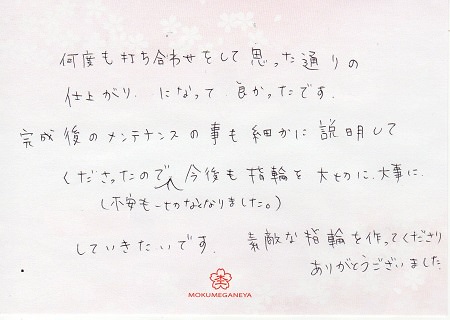 何度も打ち合わせをして思った通りの
仕上がり.になって.良かったです.
完成後のメンテナンスの事も細かに説明して
くださったので、今後も指輪を大切に.大事に.
(不安も一切なくなりました。)
していきたいです. 素敵な指輪を作ってくださり
ありがとうございました.
MOKUMEGANEYA